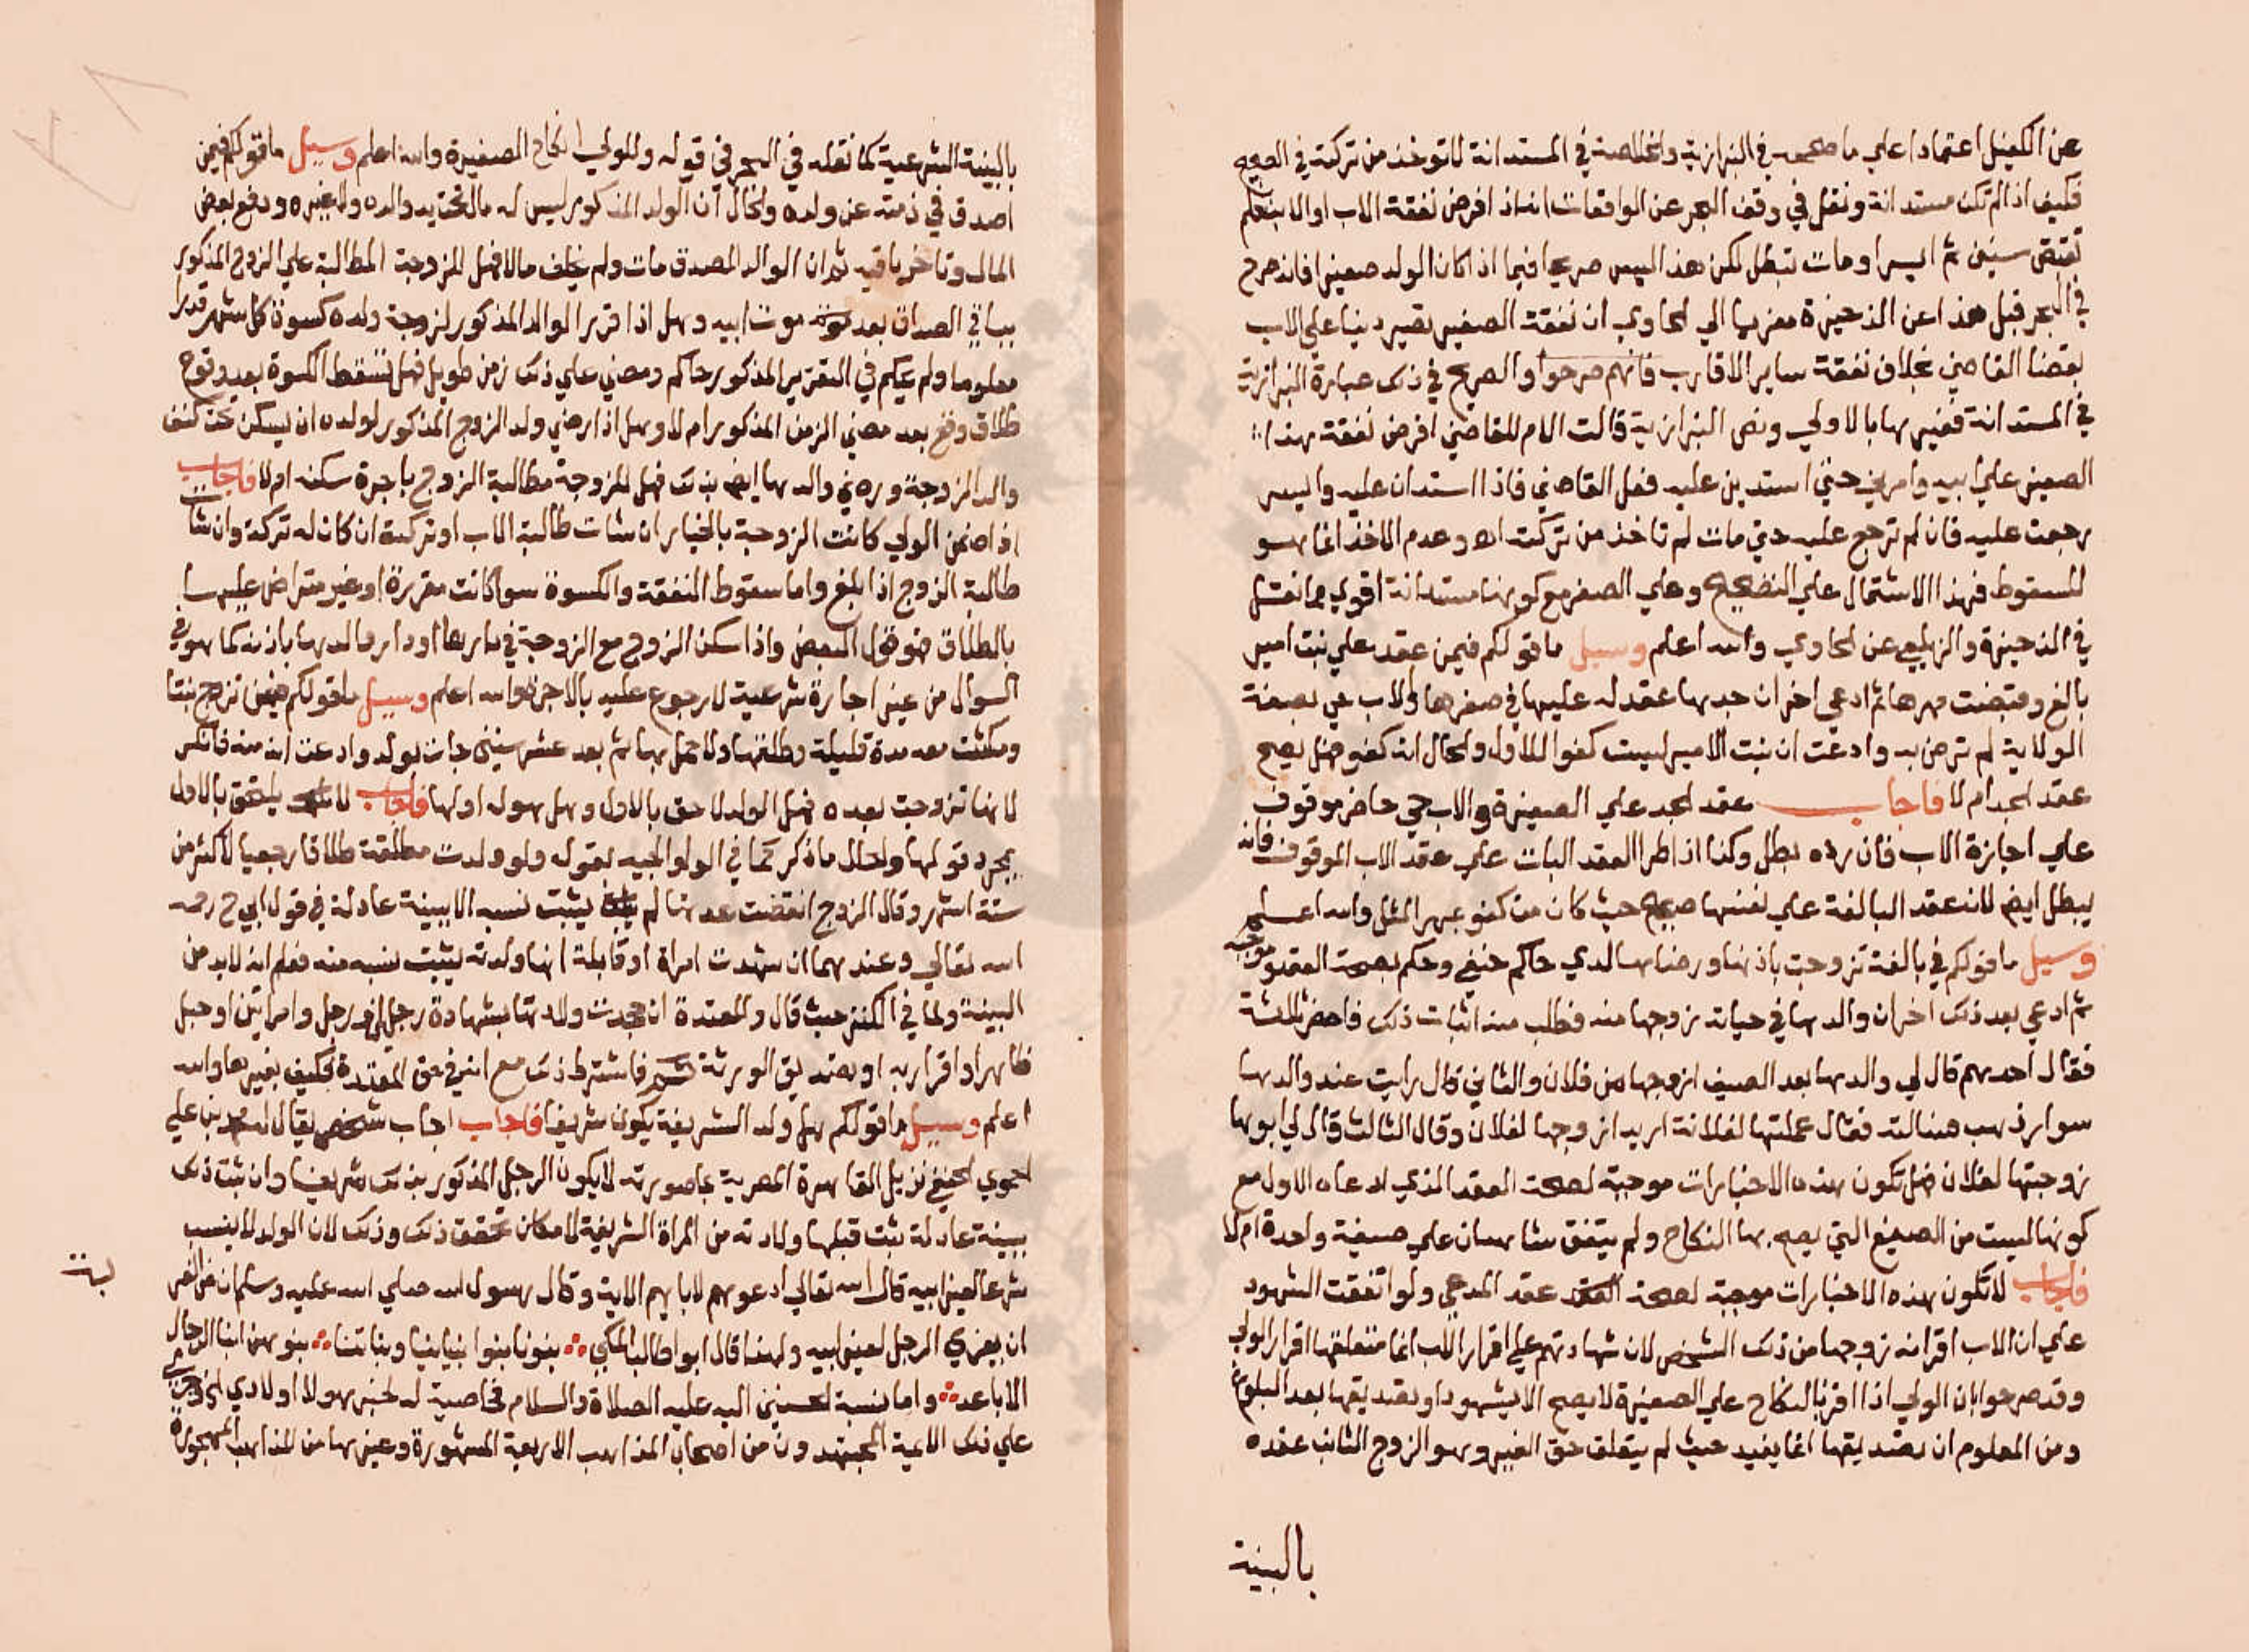 عن الكفيل اعتمادا علي ما صححه في البزازية والخلاصة في المستدانة لا توخذ من تركته في الصحيح
فكيف اذا لم تكن مستدانة ونقل في وقف البحر عن الواقعات انه اذا فرض نفقة الاب او الابن فلم
تقبض سنين ثم ايسر او مات تبطل لكن هذا ليس صريحا فيما اذا كان الولد صغيرا فانه صرح
في البحر قبل هذا عن الذخيرة معزيا الي الحاوي ان نفقة الصغير تصير دينا علي الاب
بقضا القاضي بخلاف نفقة ساير الاقارب فانهم صرحوا والصريح في ذلك عبارة البزازية
في المستدانة فغيرها بالاولي ونص البزازية قالت الام للقاضي افرض نفقة هذا
الصغير علي ابيه وامرني حتي استدين عليه ففعل القاضي فاذا استدان عليه وايسر
رجعت عليه فان لم ترجع عليه حتي مات لم تاخذ من تركته اه وعدم الاخذ انما هو
للسقوط فهذا الاشتمال علي التصحيح وعلي الصغر مع كونها مستدانة اقوي مما نقل
في الذخيرة والزيلعي عن الحاوي والله اعلم وسيل ما قولكم فيمن عقد علي بنت امير
بالغ وقبضت مهرها ثم ادعي اخر ان جدها عقد له عليها في صغرها والاب حي بصفة
الولاية لم ترض به وادعت ان بنت الامير ليست كفوا للاول والحال انه كفو فهل يصح
عقد الجد ام لا فاجاب عقد الجد علي الصغيرة والاب حي حاضر موقوف
علي اجازة الاب فان رده بطل وكذا اذا طرا العقد البات علي عقد الاب الموقوف فانه
يبطل ايضا لان عقد البالغة علي نفسها صحيح حيث كان من كفو بمهر المثل والله اعلم
وسيل ما قولكم في بالغة تزوجت باذنها ورضاها لدي حاكم حنفي وحكم بصحة العقد وموجبه
ثم ادعي بعد ذلك اخر ان والدها في حياته زوجها منه فطلب منه اثبات ذلك فاحضر ثلاثة
فقال احدهم قال لي والدها بعد الصيف ازوجها من فلان والثاني قال رايت عند والدها
سوار ذهب فسالته فقال عملتها لفلانة اريد ازوجها لفلان وقال الثالث قال لي ابوها
زوجتها لفلان فهل تكون هذه الاخبارات موجبة لصحة العقد الذي ادعاه الاول مع
كونها ليست من الصيغ التي يصح بها النكاح ولم يتفق شاهدان علي صيغة واحدة ام لا
فاجاب لا تكون هذه الاخبارات موجبة لصحة عقد المدعي ولو اتفقت الشهود
علي ان الاب اقر انه زوجها من ذلك الشخص لان شهادتهم علي اقرار الاب انما متعلقها اقرار الولي
وقد صرحوا بان الولي اذا اقر بالنكاح علي الصغيرة لا يصح الا بشهود او بتصديقها بعد البلوغ
ومن المعلوم ان تصديقها انما يفيد حيث لم يتعلق حق الغير وهو الزوج الثابت عقده
بالبينة
بالبينة الشرعية كما نقله في البحر في قوله وللولي انكاح الصغيرة والله اعلم وسيل ما قولكم فيمن
اصدق في ذمته عن ولده والحال ان الولد المذكور ليس له مال تحت يد والده ولا غيره ودفع بعض
المال وتاخر باقيه ثم ان الوالد المصدق مات ولم يخلف مالا فهل للزوجة المطالبة علي الزوج المذكور
بباقي الصداق بعد موت ابيه وهل اذا قرر الوالد المذكور لزوجة ولده كسوة كل شهر قدرا
معلوما ولم يحكم في التقرير المذكور حاكم ومضي علي ذلك زمن طويل فهل تسقط الكسوة بعد وقوع
طلاق وقع بعد مضي الزمن المذكور ام لا وهل اذا رضي ولد الزوج المذكور لولده ان يسكن تحت كنف
والد الزوجة ورضي والدها ايضا بذلك فهل للزوجة مطالبة الزوج باجرة سكنه ام لا فاجاب
اذا ضمن الولي كانت الزوجة بالخيار ان شات طالبة الاب او تركته ان كان له تركة وان شات
طالبة الزوج اذا بلغ واما سقوط النفقة والكسوة سوا كانت مقررة او غير متراض عليها
بالطلاق فهو قول البعض واذا سكن الزوج مع الزوجة في دارها او دار والدها باذنه كما هو في
السوال من غير اجارة شرعية لا رجوع عليه بالاجرة والله اعلم وسيل ما قولكم فيمن تزوج بنتا
ومكثت معه مدة قليلة وطلقها ولا حمل بها ثم بعد عشر سنين جات بولد وادعت انه منه فانكر
لانها تزوجت بعده فهل الولد لاحق بالاول وهل هو له او لها فاجاب لا يلحق بالاول
بمجرد قولها والحال ما ذكر كما في الولوالجيه بقوله ولو ولدت مطلقة طلاقا رجعيا لاكثر من
ستة اشهر وقال الزوج انقضت عدتها لم يثبت نسبه الا ببينة عادلة في قول ابي ح رحمه
الله تعالي وعندهما ان شهدت امراة او قابلة انها ولدته يثبت نسبه منه فعلم انه لا بد من
البينة ولما في الكنز حيث قال والمعتدة ان جحدت ولادتها بشهادة رجلين او رجل وامراتين او حبل
ظاهر او اقرار به او تصديق الورثة فاشترط ذلك مع انه في حق المعتدة فكيف بغيرها والله
اعلم وسيل ما قولكم هل ولد الشريفة يكون شريفا فاجاب اجاب شخص يقال له محمد بن علي
الحموي الحنفي نزيل القاهرة المصرية بما صورته لا يكون الرجل المذكور بذلك شريفا وان ثبت ذلك
ببينة عادلة ثبت قبلها ولادته من المراة الشريفة لامكان تحقق ذلك وذلك لان الولد لا ينسب
شرعا لغير ابيه قال الله تعالي ادعوهم لابايهم الاية وقال رسول الله صلي الله عليه وسلم ان من الفرى
ان يعزي الرجل لغير ابيه ولهذا قال ابو طالب المكي بنونا بنوا ابنائنا وبناتنا بنوهن ابنا الرجال
الاباعد واما نسبة الحسنين اليه عليه الصلاة والسلام فخاصية له لخبر هولا اولادي
علي ذلك الايمة المجتهدون من اصحاب المذاهب الاربعة المشهورة وغيرها من المذاهب المهجورة